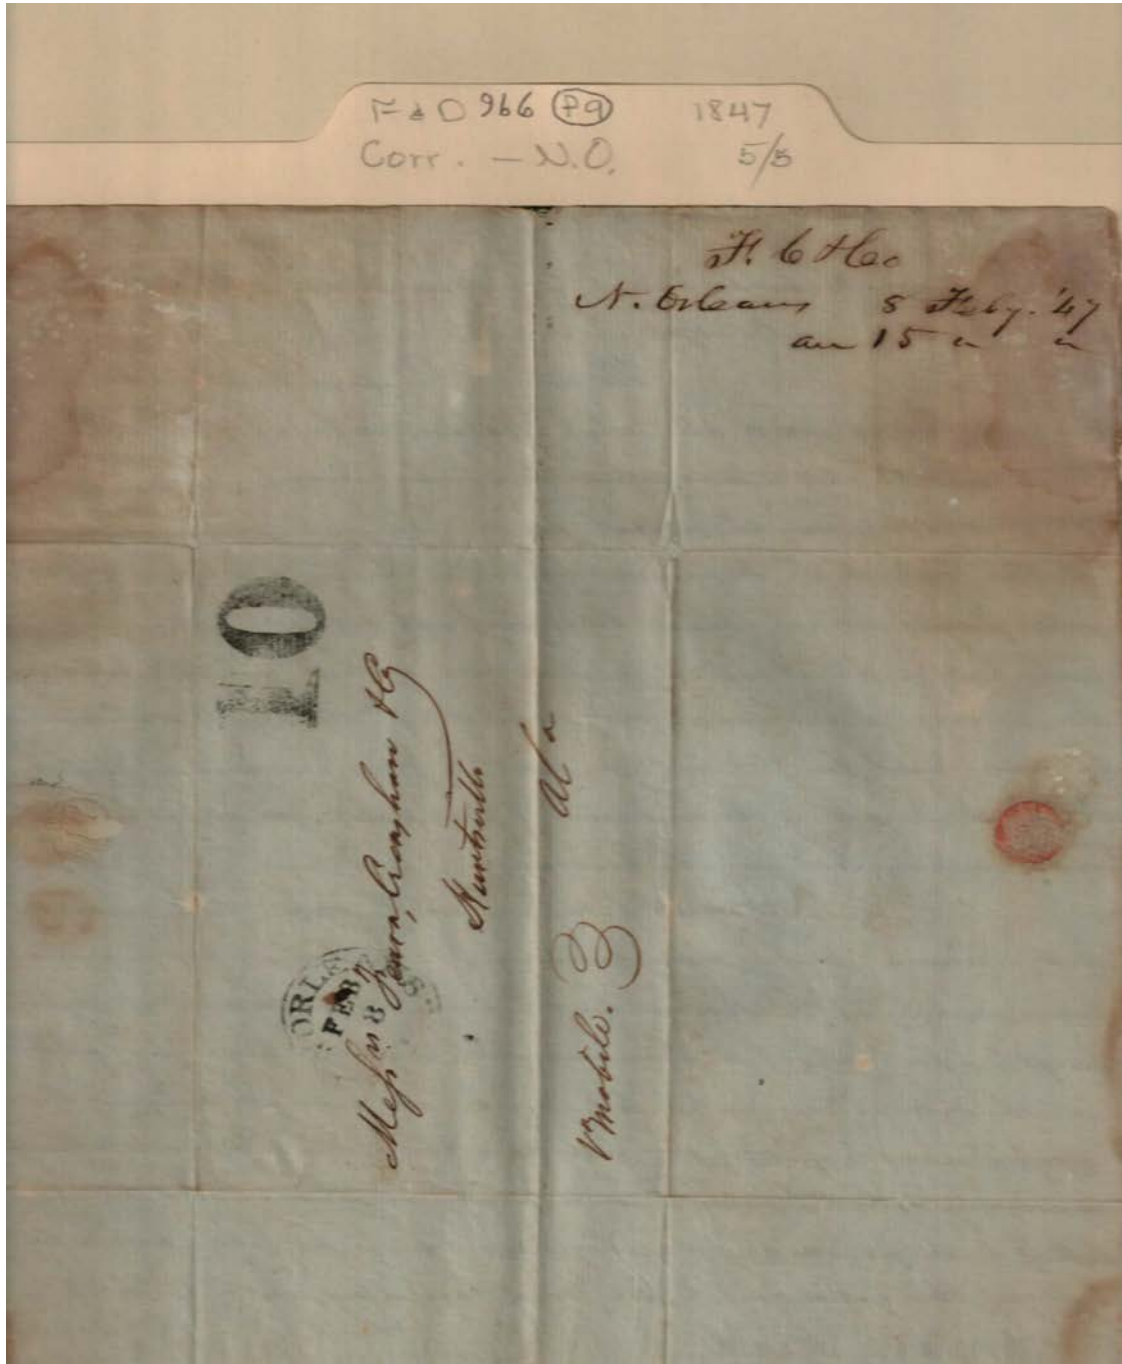 F & D 966 P9 1847
Corr. — N.O. 5/5
F. C & Co
N. Orleans 5 Feby. '47
an 15 " "
10
ORLEANS
FEB
8
Messrs Fearn, & Co
Huntsville
Ala
Va Mobile.